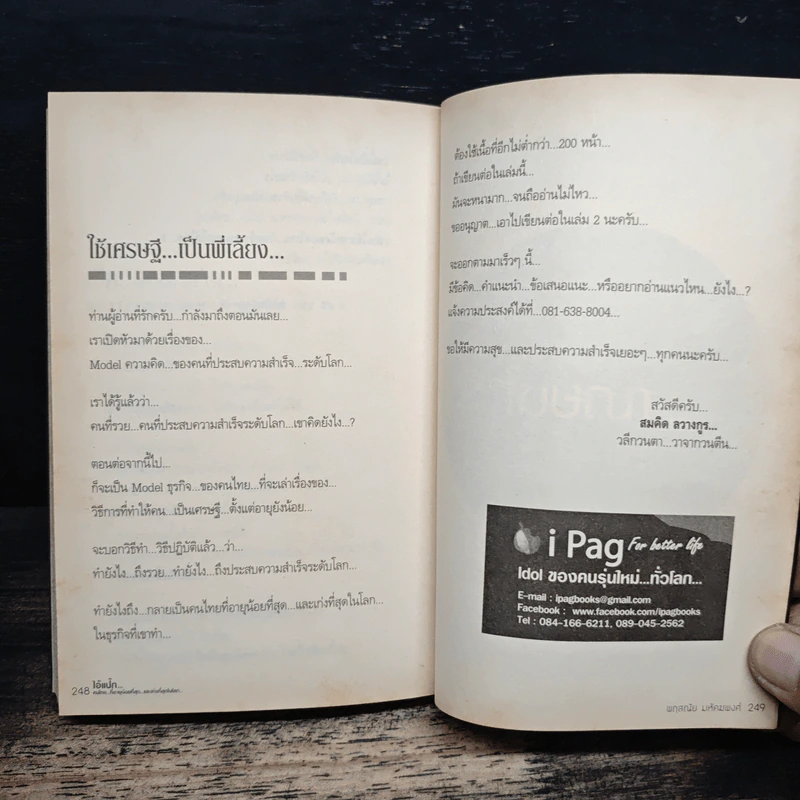 ใช้เศรษฐี...เป็นพี่เลี้ยง...
ท่านผู้อ่านที่รักครับ...กำลังมาถึงตอนมันเลย...
เราเปิดหัวมาด้วยเรื่องของ...
Model ความคิด...ของคนที่ประสบความสำเร็จ...ระดับโลก...
เราได้รู้แล้วว่า...
คนที่รวย...คนที่ประสบความสำเร็จระดับโลก...เขาคิดยังไง...?
ตอนต่อจากนี้ไป...
ก็จะเป็น Model ธุรกิจ...ของคนไทย...ที่จะเล่าเรื่องของ...
วิธีการที่ทำให้คน...เป็นเศรษฐี...ตั้งแต่อายุยังน้อย...
จะบอกวิธีทำ...วิธีปฏิบัติแล้ว...ว่า...
ทำยังไง...ถึงรวย...ทำยังไง...ถึงประสบความสำเร็จระดับโลก...
ทำยังไงถึง...กลายเป็นคนไทยที่อายุน้อยที่สุด...และเก่งที่สุดในโลก...
ในธุรกิจที่เขาทำ...
248 ไอ้แป๊ก...
ต้องใช้เนื้อที่อีกไม่ต่ำกว่า...200 หน้า...
ถ้าเขียนต่อในเล่มนี้...
มันจะหนามาก...จนถืออ่านไม่ไหว...
ขออนุญาต...เอาไปเขียนต่อในเล่ม 2 นะครับ...
จะออกตามมาเร็วๆ นี้...
มีข้อคิด...คำแนะนำ...ข้อเสนอแนะ...หรืออยากอ่านแนวไหน...ยังไง...?
แจ้งความประสงค์ได้ที่...081-638-8004...
ขอให้มีความสุข...และประสบความสำเร็จเยอะๆ...ทุกคนนะครับ...
สวัสดีครับ...
สมคิด ลวางกูร...
วลีกวนตา...วาจากวนตีน...
i Pag For better life
Idol ของคนรุ่นใหม่...ทั่วโลก...
E-mail : ipagbooks@gmail.com
Facebook : www.facebook.com/ipagbooks
Tel : 084-166-6211, 089-045-2562
249